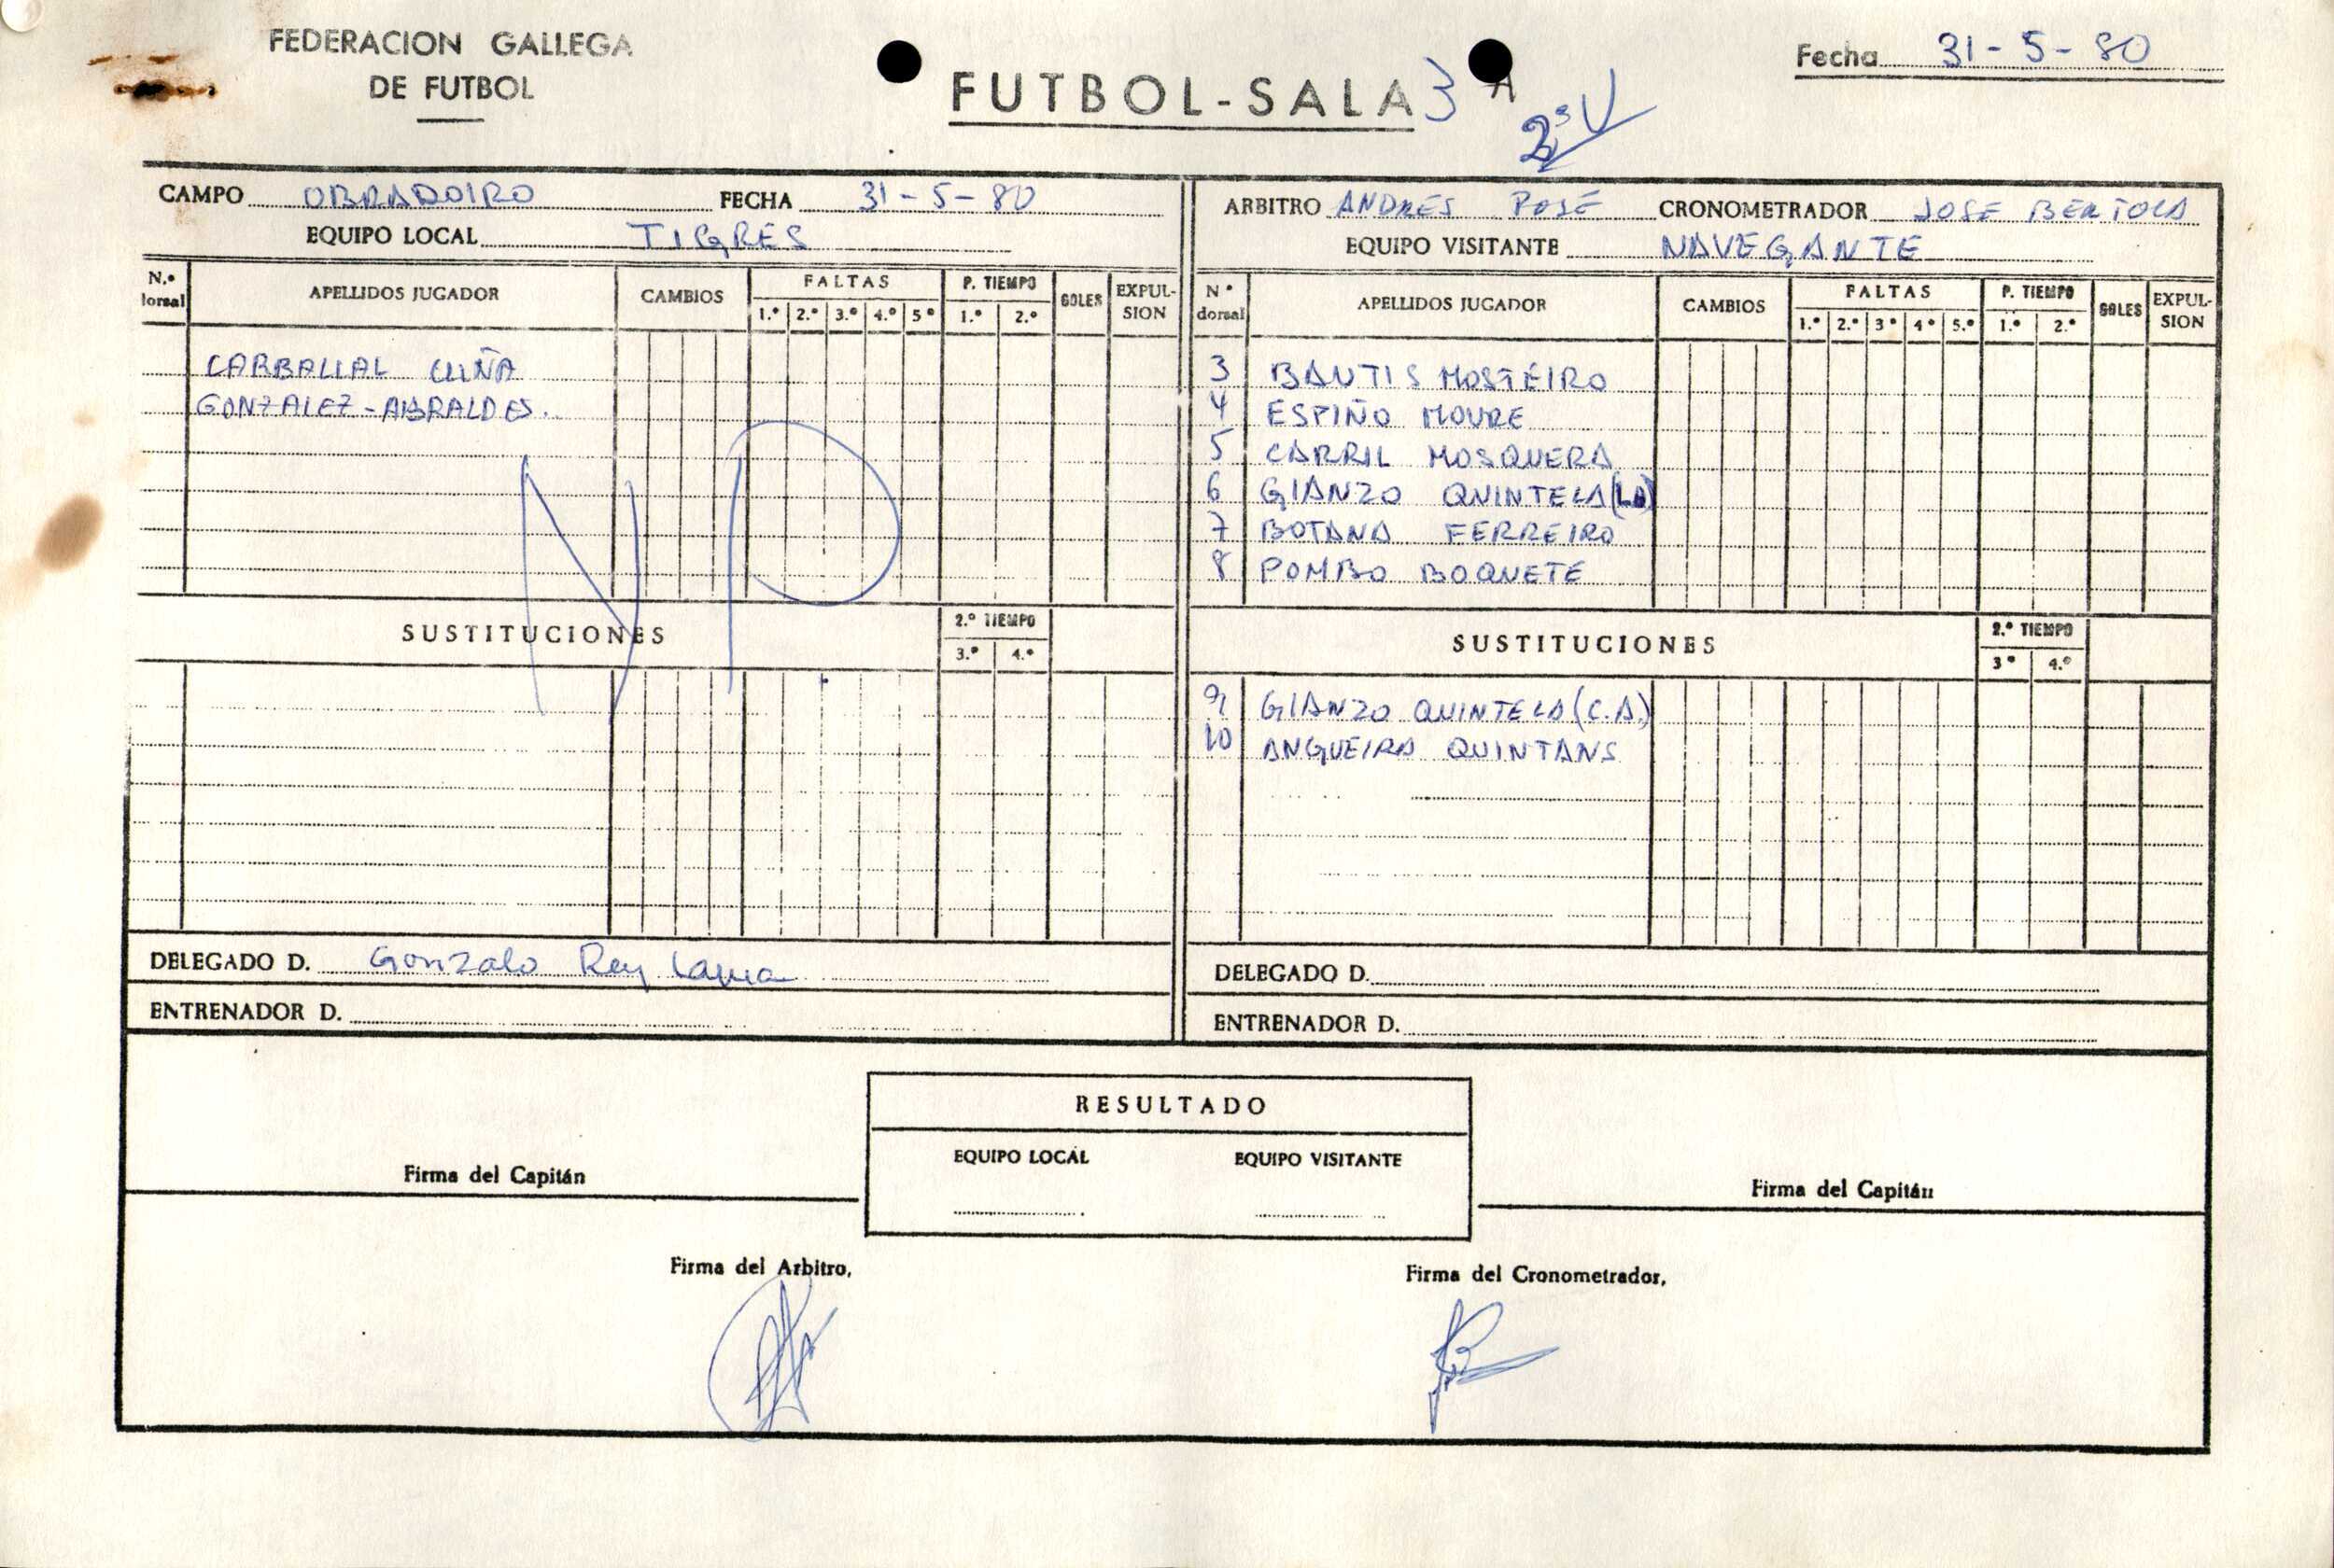 FEDERACION GALLEGA
DE FUTBOL
FUTBOL-SALA 3 A
2ª V
Fecha 31-5-80
CAMPO OBRADOIRO FECHA 31-5-80
EQUIPO LOCAL TIGRES
N.º dorsal APELLIDOS JUGADOR CAMBIOS FALTAS P. TIEMPO GOLES EXPUL-SION
1.º 2.º 3.º 4.º 5º 1.º 2.º
CARBALLAL CUIÑA
GONZALEZ-ABRALDES.
NP
SUSTITUCIONES 2.º TIEMPO
3.º 4.º
DELEGADO D. Gonzalo Rey
ENTRENADOR D.
ARBITRO ANDRES POSE CRONOMETRADOR JOSE BERTOLA
EQUIPO VISITANTE NAVEGANTE
Nº dorsal APELLIDOS JUGADOR CAMBIOS FALTAS P. TIEMPO GOLES EXPUL-SION
1.º 2.º 3º 4º 5.º 1.º 2.º
3 BAUTIS MOSTEIRO
4 ESPIÑO MOURE
5 CARRIL MOSQUERA
6 GIANZO QUINTELA
7 BOTANA FERREIRO
8 POMBO BOQUETE
SUSTITUCIONES 2.º TIEMPO
3º 4.º
9 GIANZO QUINTELA (C.A.)
10 ANGUEIRA QUINTANS
DELEGADO D.
ENTRENADOR D.
RESULTADO
EQUIPO LOCAL EQUIPO VISITANTE
Firma del Capitán
Firma del Capitán
Firma del Arbitro,
Firma del Cronometrador,